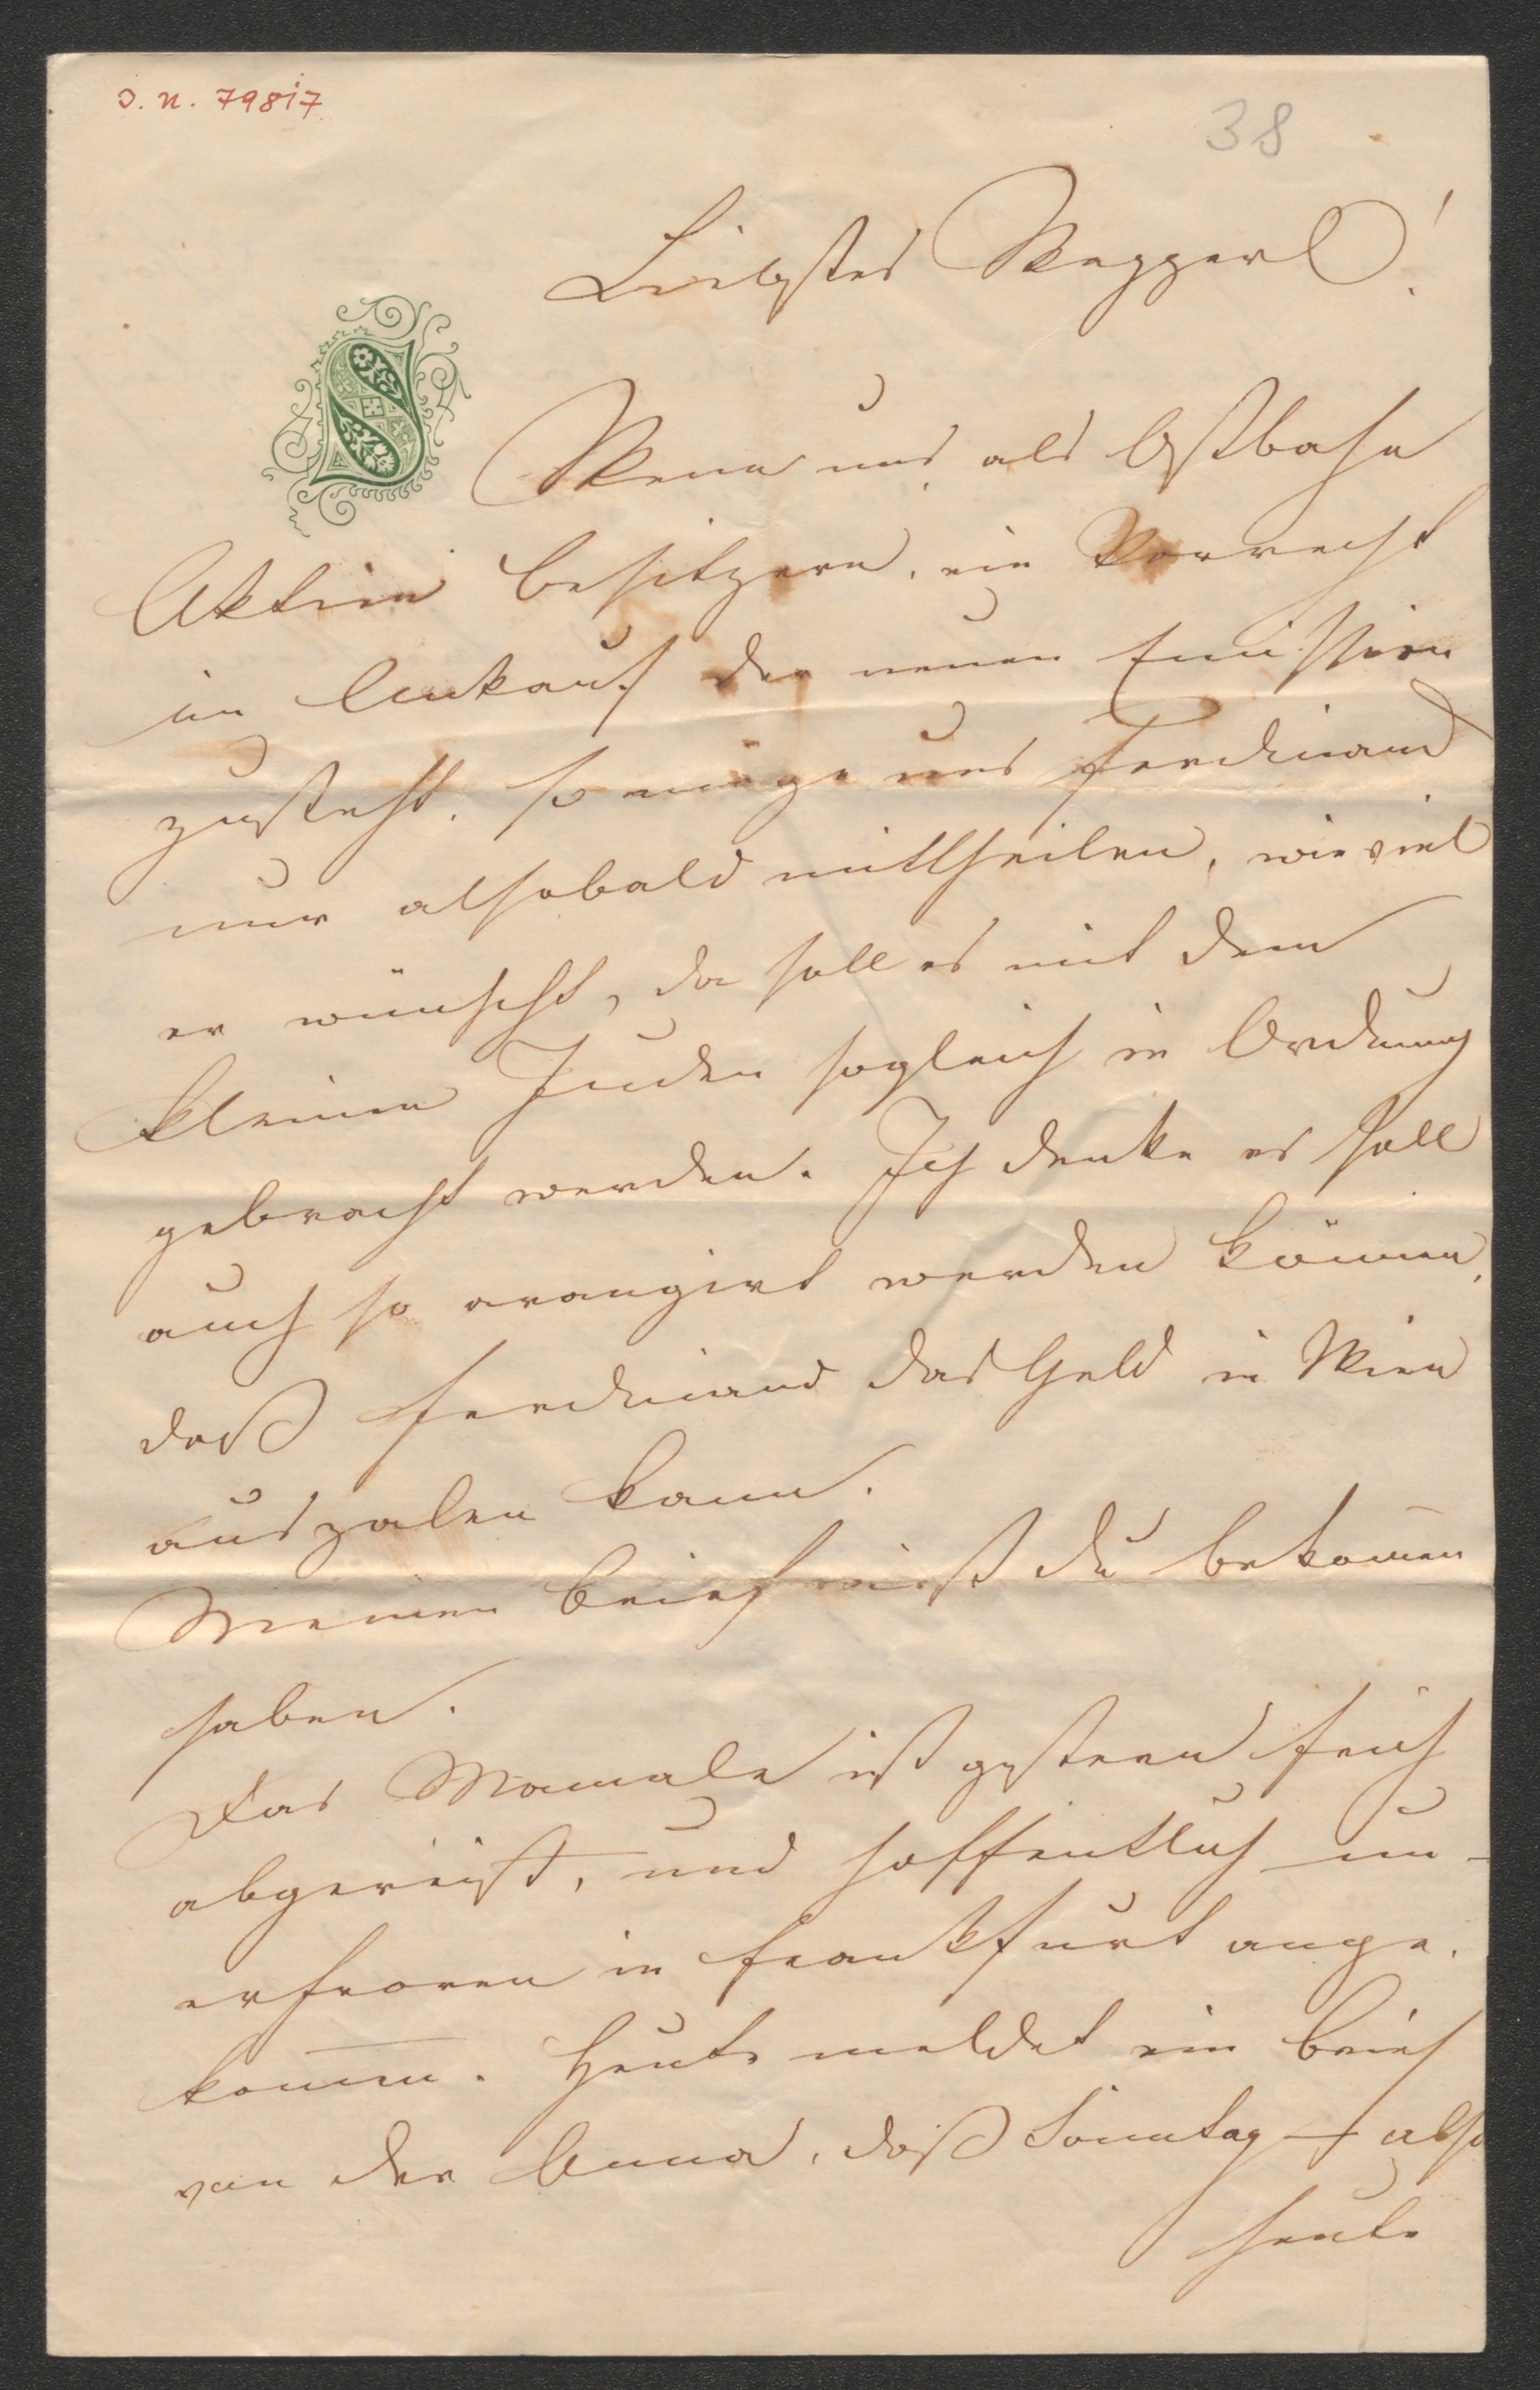 J. N. 79817
38
Liebstes Weggerl!
S
Wenn uns als Ostbahn
Aktien besitzern, ein Vorrecht
im Ankauf der neuen Emission
zusteht, so möge uns Ferdinand
nur alsobald mittheilen, wie viel
er wünscht, da soll es mit dem
kleinen Juden sogleich in Ordnung
gebracht werden. Ich denke es soll
auch so arangirt werden können,
daß Ferdinand das Geld in Wien
auszalen kann.
Meinen Brief wirst du bekom̄en
haben.
Das Mamale ist gestern früh
abgereist, und hoffentlich un-
erfroren in Frankfurt ange-
kom̄en. Heute meldet ein Brief
von der Anna, daß Sonntag – also
heute